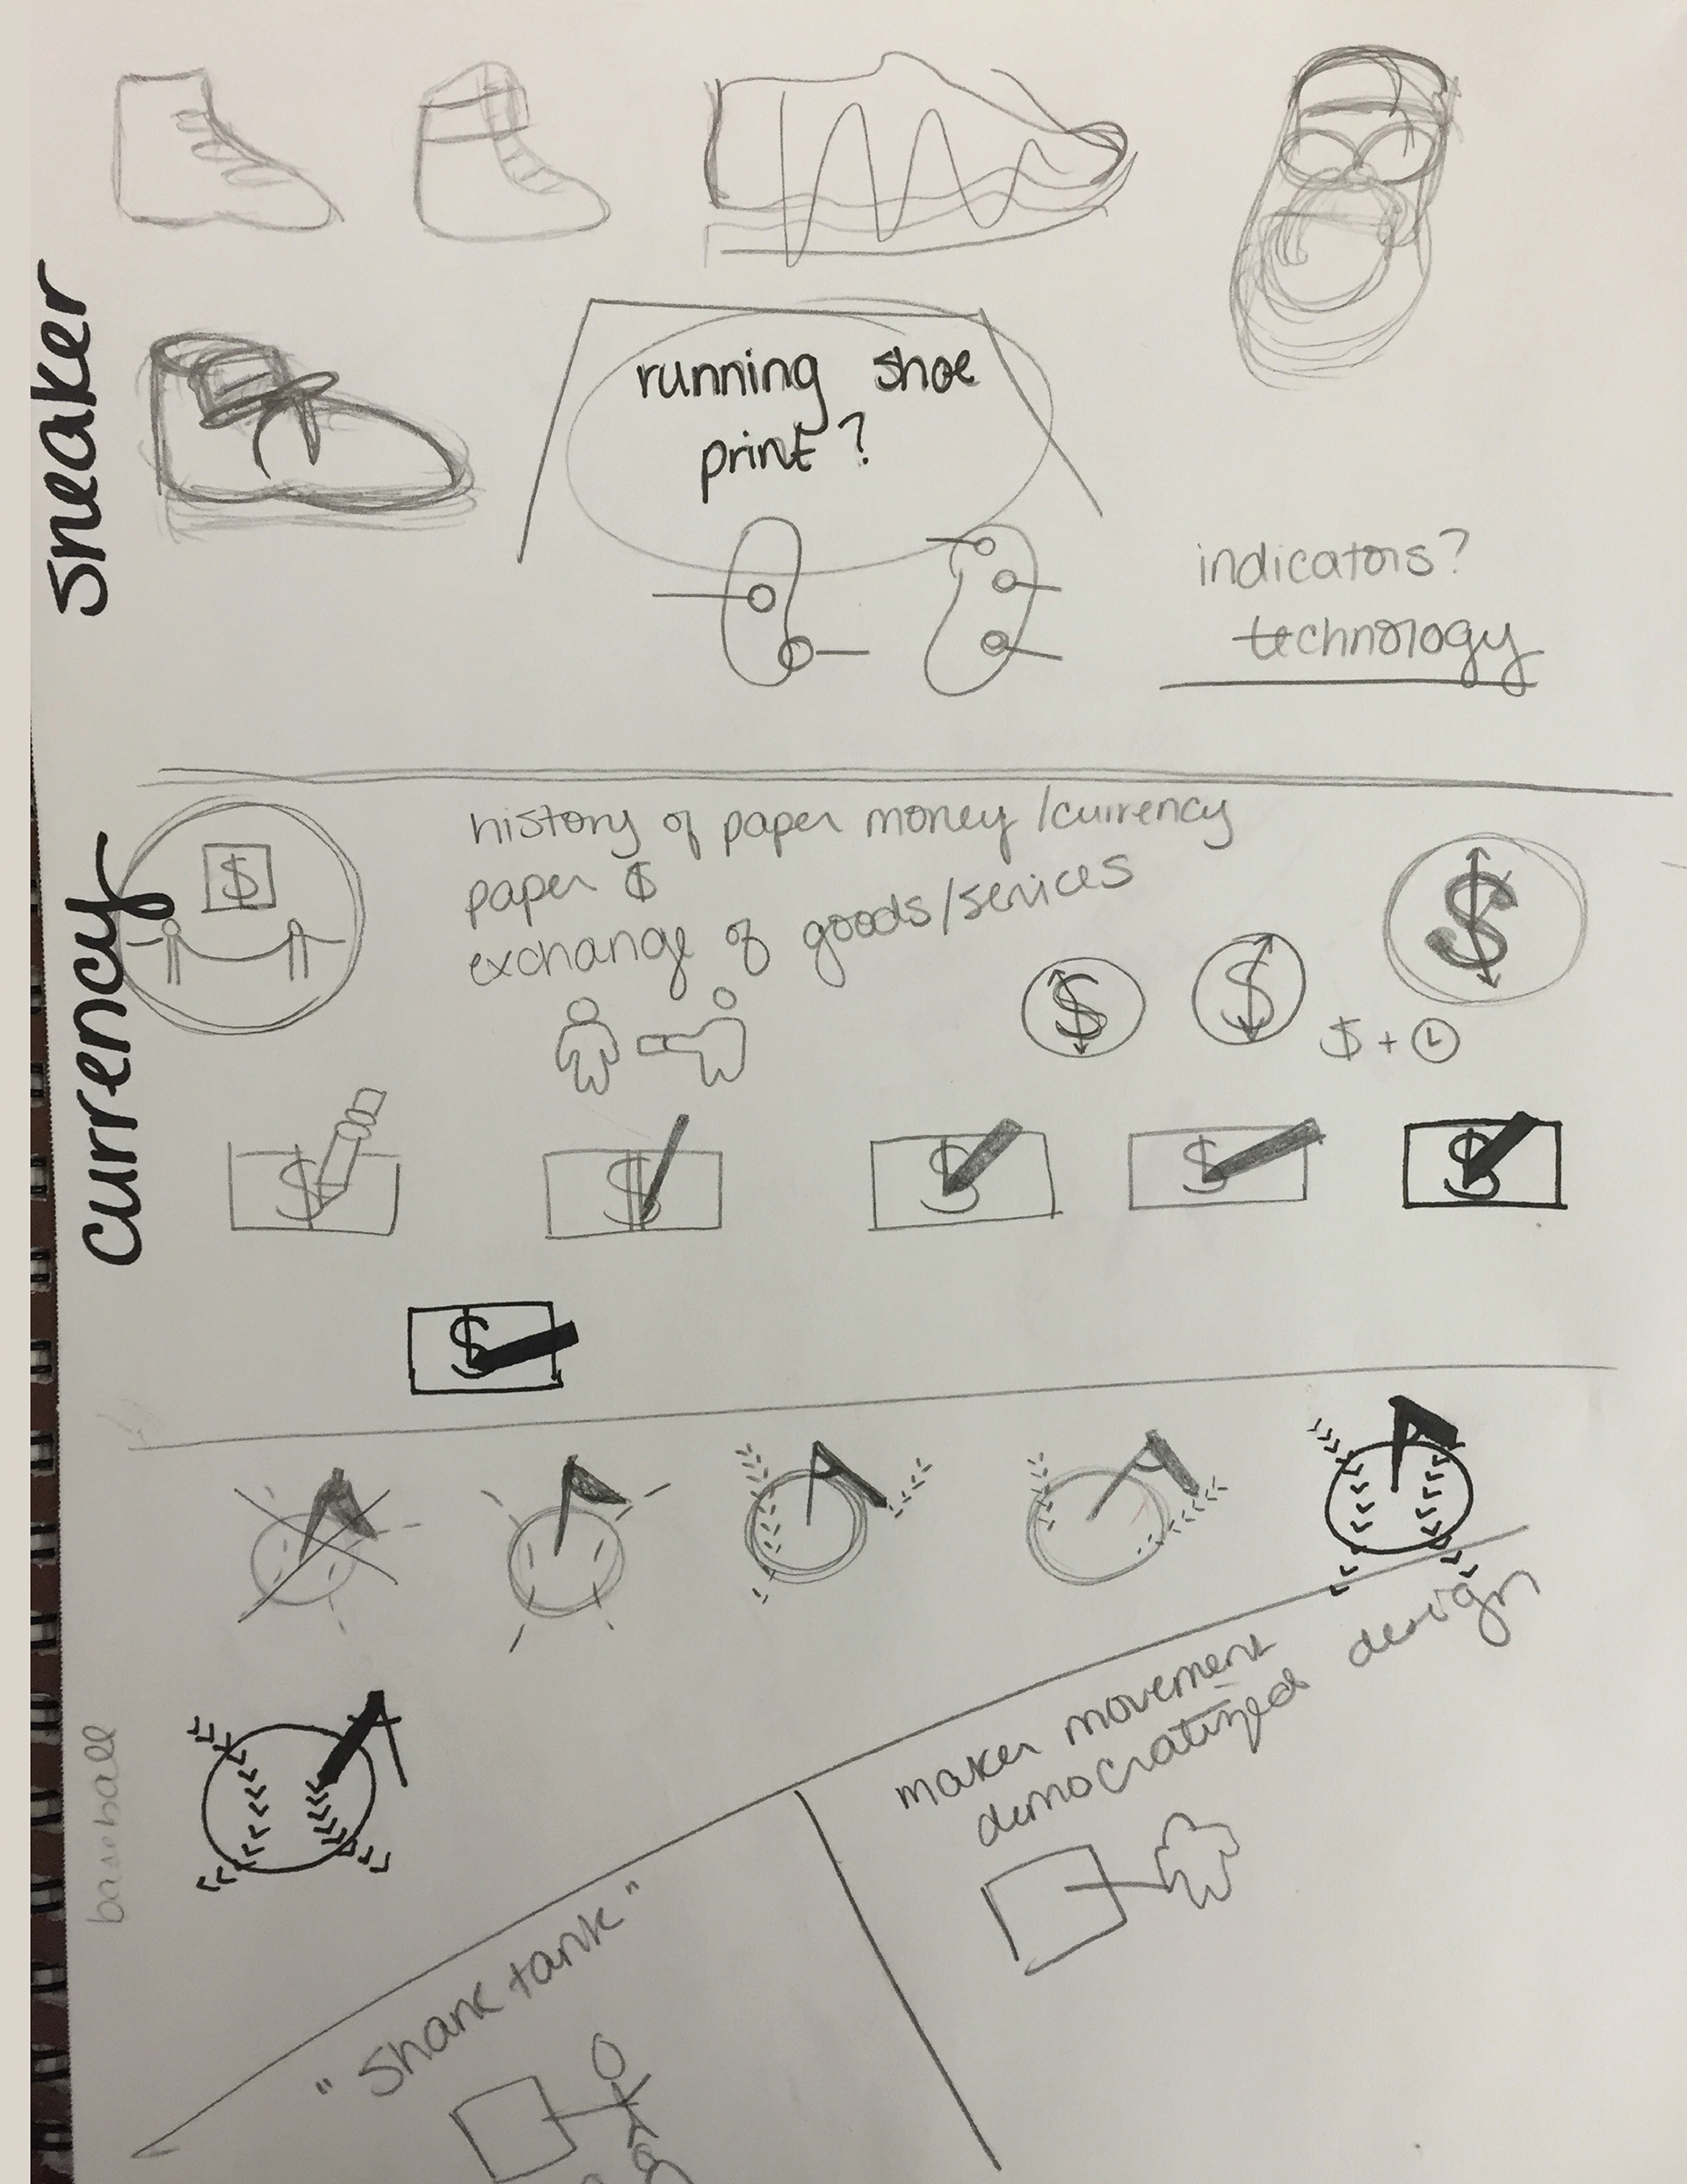 sneaker
running shoe
print?
indicators?
technology
currency
$
history of paper money/currency
paper $
exchange of goods/services
$
$
$
$ +
$
$
$
$
$
$
baseball
maker movement
democratized design
"Shark tank"